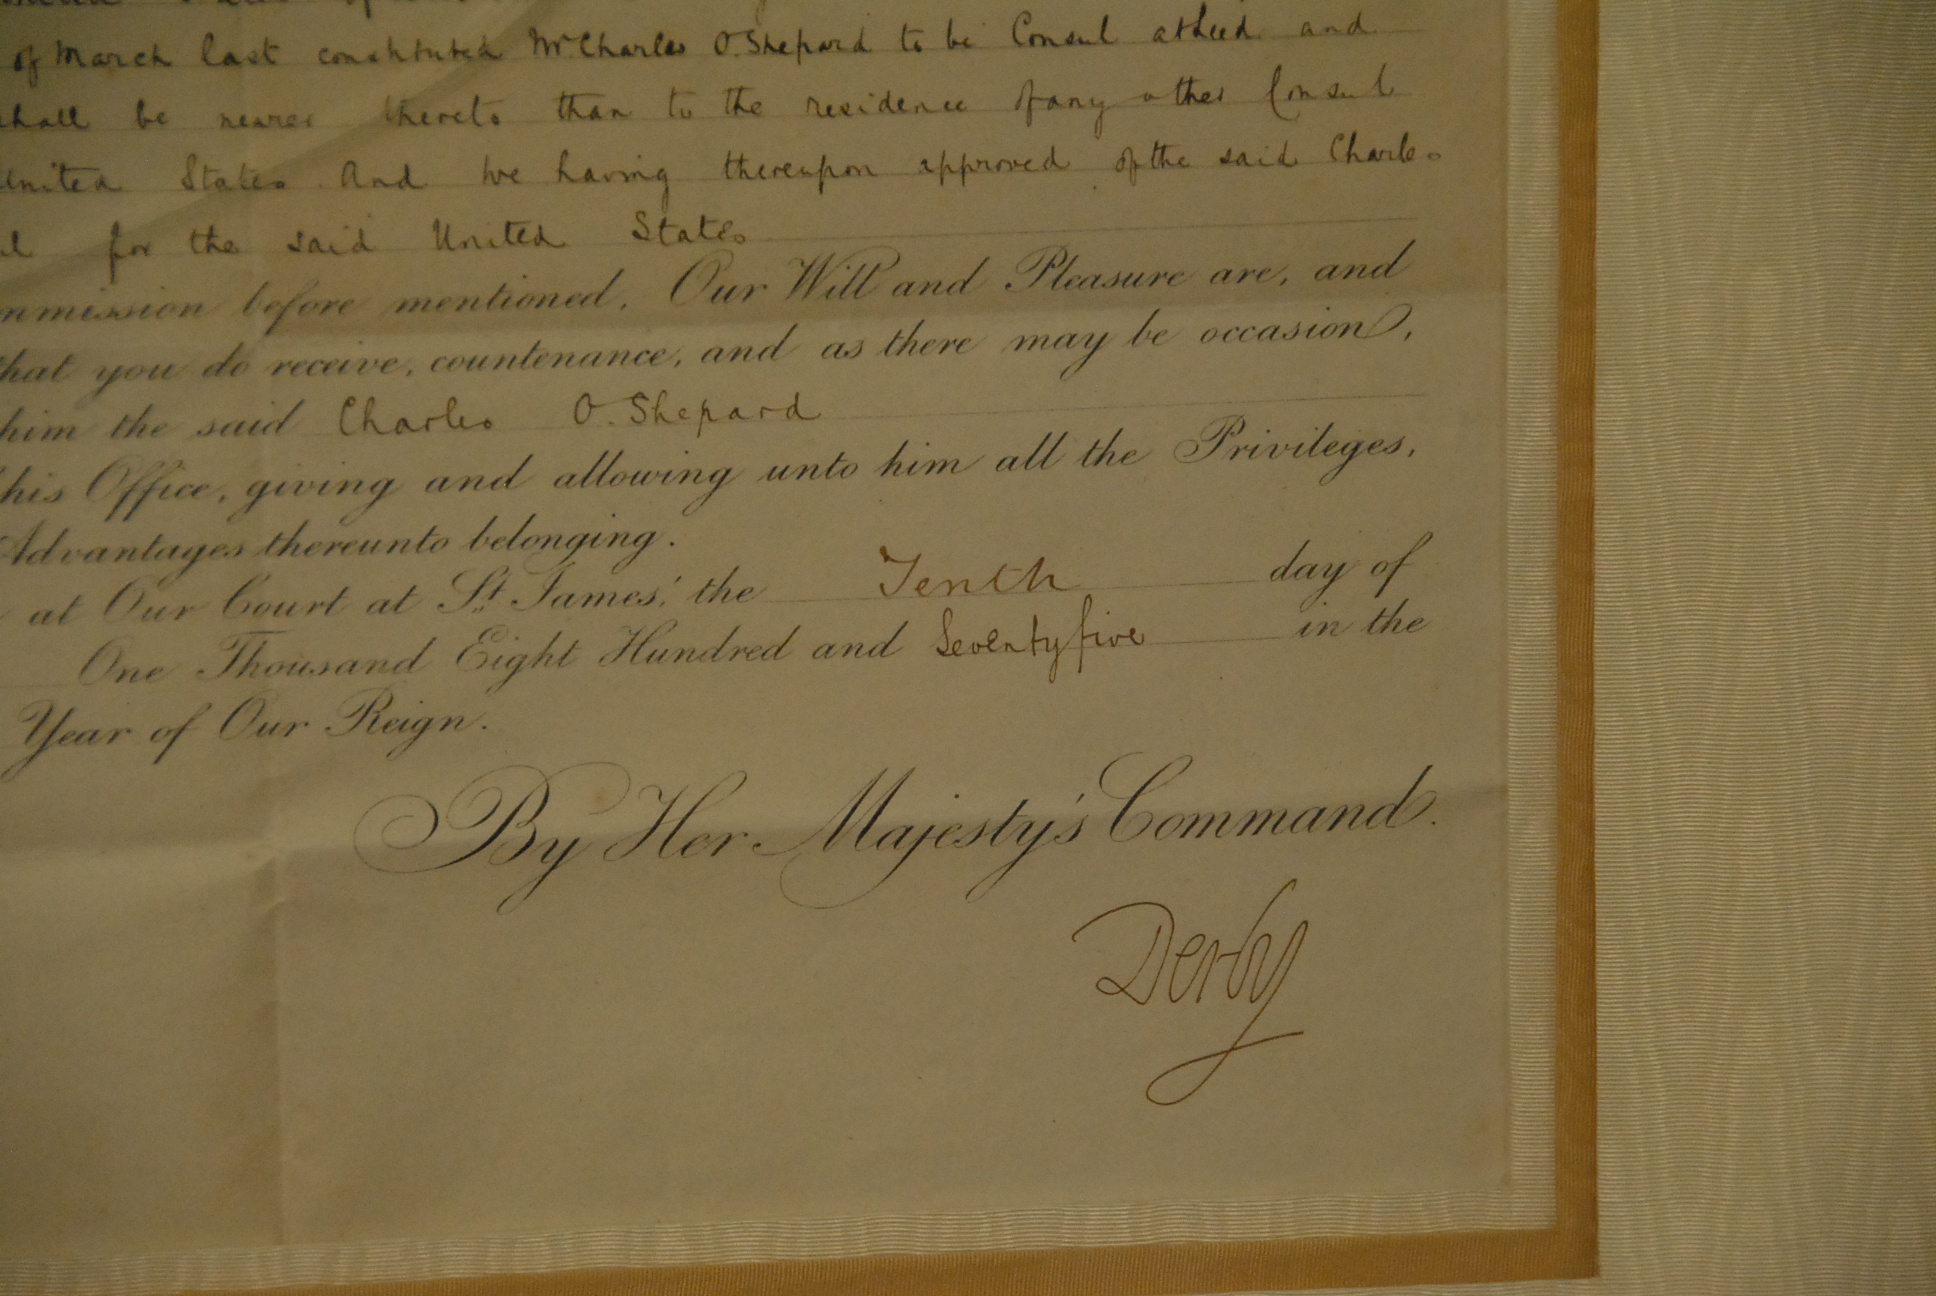 of March last constituted Mr Charles O. Shepard to be Consul at Leeds and
shall be nearer thereto than to the residence of any other Consul
United States And We having thereupon approved of the said Charles
for the said United States
before mentioned. Our Will and Pleasure are, and
that you do receive, countenance, and as there may be occasion,
him the said Charles O. Shepard
his Office, giving and allowing unto him all the Privileges,
Advantages thereunto belonging.
at Our Court at St. James', the Tenth day of
One Thousand Eight Hundred and Seventy five in the
Year of Our Reign.
By Her Majesty's Command.
Derby